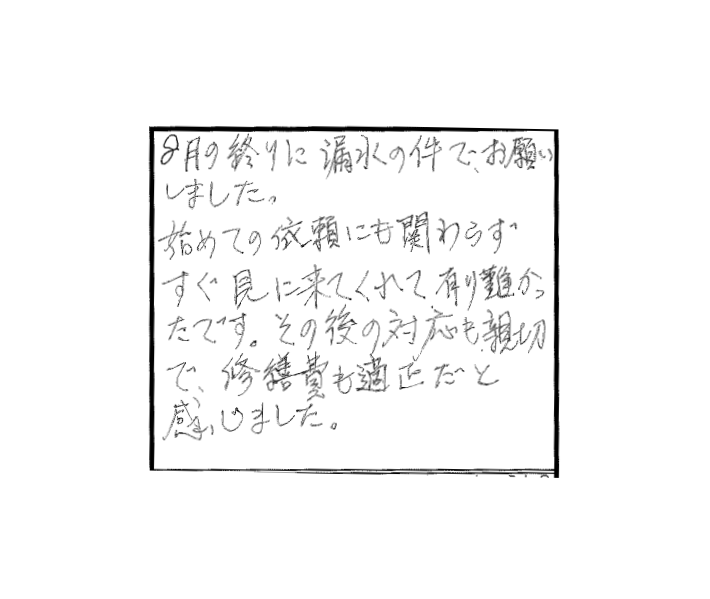 8月の終りに漏水の件で、お願い
しました。
始めての依頼にも関わらず
すぐ見に来てくれて有り難かっ
たです。その後の対応も親切
で、修繕費も適正だと
感じました。